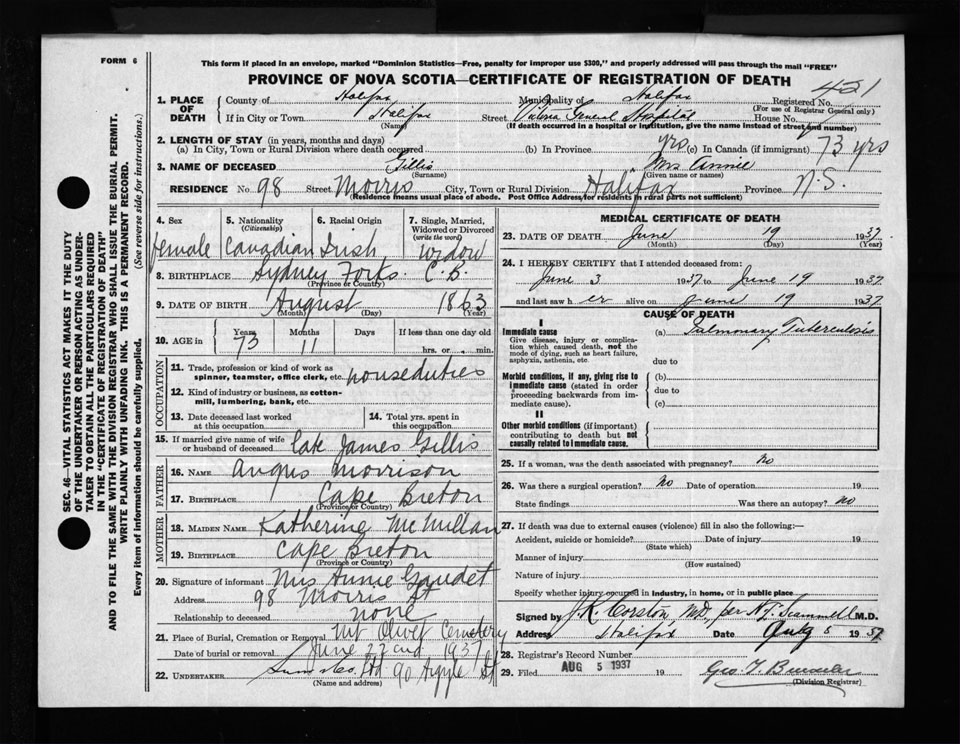 FORM 6
This form if placed in an envelope, marked "Dominion Statistics—Free, penalty for improper use $300," and properly addressed will pass through the mail "FREE"
PROVINCE OF NOVA SCOTIA—CERTIFICATE OF REGISTRATION OF DEATH
421
1. PLACE OF DEATH County of Halifax Municipality of Halifax Registered No.
(For use of Registrar General only)
If in City or Town Halifax Street Victoria General Hospital House No.
(Name) (If death occurred in a hospital or institution, give the name instead of street and number)
2. LENGTH OF STAY (in years, months and days)
(a) In City, Town or Rural Division where death occurred (b) In Province yrs (c) In Canada (if immigrant) 73 yrs
3. NAME OF DECEASED Gillis Mrs Annie
(Surname) (Given name or names)
RESIDENCE No. 98 Street Morris City, Town or Rural Division Halifax Province N.S.
(Residence means usual place of abode. Post Office Address for residents in rural parts not sufficient)
4. Sex 5. Nationality (Citizenship) 6. Racial Origin 7. Single, Married, Widowed or Divorced (write the word)
female Canadian Irish Widow
8. BIRTHPLACE Sydney Forks. C.B.
(Province or Country)
9. DATE OF BIRTH August 1863
(Month) (Day) (Year)
10. AGE in Years Months Days If less than one day old
73 11 hrs. or min.
OCCUPATION
11. Trade, profession or kind of work as spinner, teamster, office clerk, etc. housduties
12. Kind of industry or business, as cotton-mill, lumbering, bank, etc.
13. Date deceased last worked at this occupation 14. Total yrs. spent in this occupation
15. If married give name of wife or husband of deceased late James Gillis
FATHER
16. NAME Angus Morrison
17. BIRTHPLACE Cape Breton
(Province or Country)
MOTHER
18. MAIDEN NAME Katherine McMillan
19. BIRTHPLACE Cape Breton
(Province or Country)
20. Signature of informant Mrs Annie Gaudet
Address 98 Morris St
Relationship to deceased none
21. Place of Burial, Cremation or Removal Mt Olivet Cemetery
Date of burial or removal June 22nd 1937
22. UNDERTAKER Ltd 90 Argyle St
(Name and address)
MEDICAL CERTIFICATE OF DEATH
23. DATE OF DEATH June 19 1937
(Month) (Day) (Year)
24. I HEREBY CERTIFY that I attended deceased from:
June 3 1937 to June 19 1937
and last saw her alive on June 19 1937
CAUSE OF DEATH
I
Immediate cause (a) Pulmonary Tuberculosis
Give disease, injury or complication which caused death, not the mode of dying, such as heart failure, asphyxia, asthenia, etc.
due to
Morbid conditions, if any, giving rise to immediate cause (stated in order proceeding backwards from immediate cause).
(b)
due to
(c)
II
Other morbid conditions (if important) contributing to death but not causally related to immediate cause.
25. If a woman, was the death associated with pregnancy? No
26. Was there a surgical operation? No Date of operation 19
State findings Was there an autopsy? No
27. If death was due to external causes (violence) fill in also the following:—
Accident, suicide or homicide? Date of injury 19
(State which)
Manner of injury
(How sustained)
Nature of injury
Specify whether injury occurred in industry, in home, or in public place
Signed by J.R. Corston, M.D. per N.J. Scammell M.D.
Address Halifax Date Aug 5 1937
28. Registrar's Record Number
29. Filed AUG 5 1937 19
(Division Registrar)
SEC. 46—VITAL STATISTICS ACT MAKES IT THE DUTY
OF THE UNDERTAKER OR PERSON ACTING AS UNDER-
TAKER TO OBTAIN ALL THE PARTICULARS REQUIRED
IN THE "CERTIFICATE OF REGISTRATION OF DEATH"
AND TO FILE THE SAME WITH THE DIVISION REGISTRAR WHO SHALL ISSUE THE BURIAL PERMIT.
WRITE PLAINLY WITH UNFADING INK. THIS IS A PERMANENT RECORD.
Every item of information should be carefully supplied. (See reverse side for instructions.)